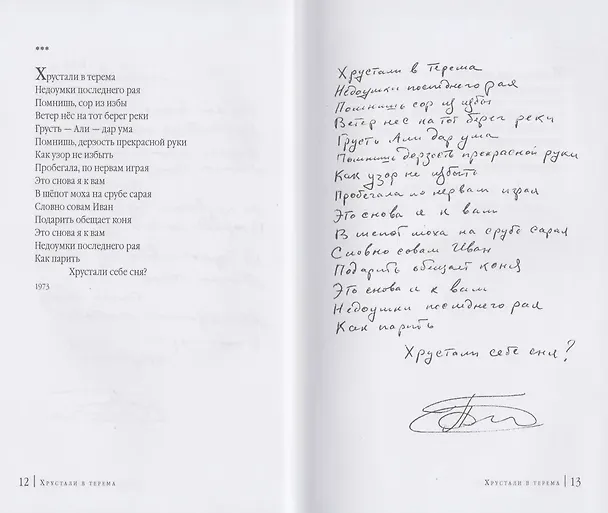 ***
Хрустали в терема
Недоумки последнего рая
Помнишь, сор из избы
Ветер нёс на тот берег реки
Грусть — Али — дар ума
Помнишь, дерзость прекрасной руки
Как узор не избыть
Пробегала, по нервам играя
Это снова я к вам
В шёпот моха на срубе сарая
Словно совам Иван
Подарить обещает коня
Это снова я к вам
Недоумки последнего рая
Как парить
Хрустали себе сня?
1973
12 | Хрустали в терема
Хрустали в терема
Недоумки последнего рая
Помнишь сор из избы
Ветер нес на тот берег реки
Грусть Али дар ума
Помнишь дерзость прекрасной руки
Как узор не избыть
Пробегала по нервам играя
Это снова я к вам
В шепот моха на срубе сарая
Словно совам Иван
Подарить обещает коня
Это снова я к вам
Недоумки последнего рая
Как парить
Хрустали себе сня?
Хрустали в терема | 13